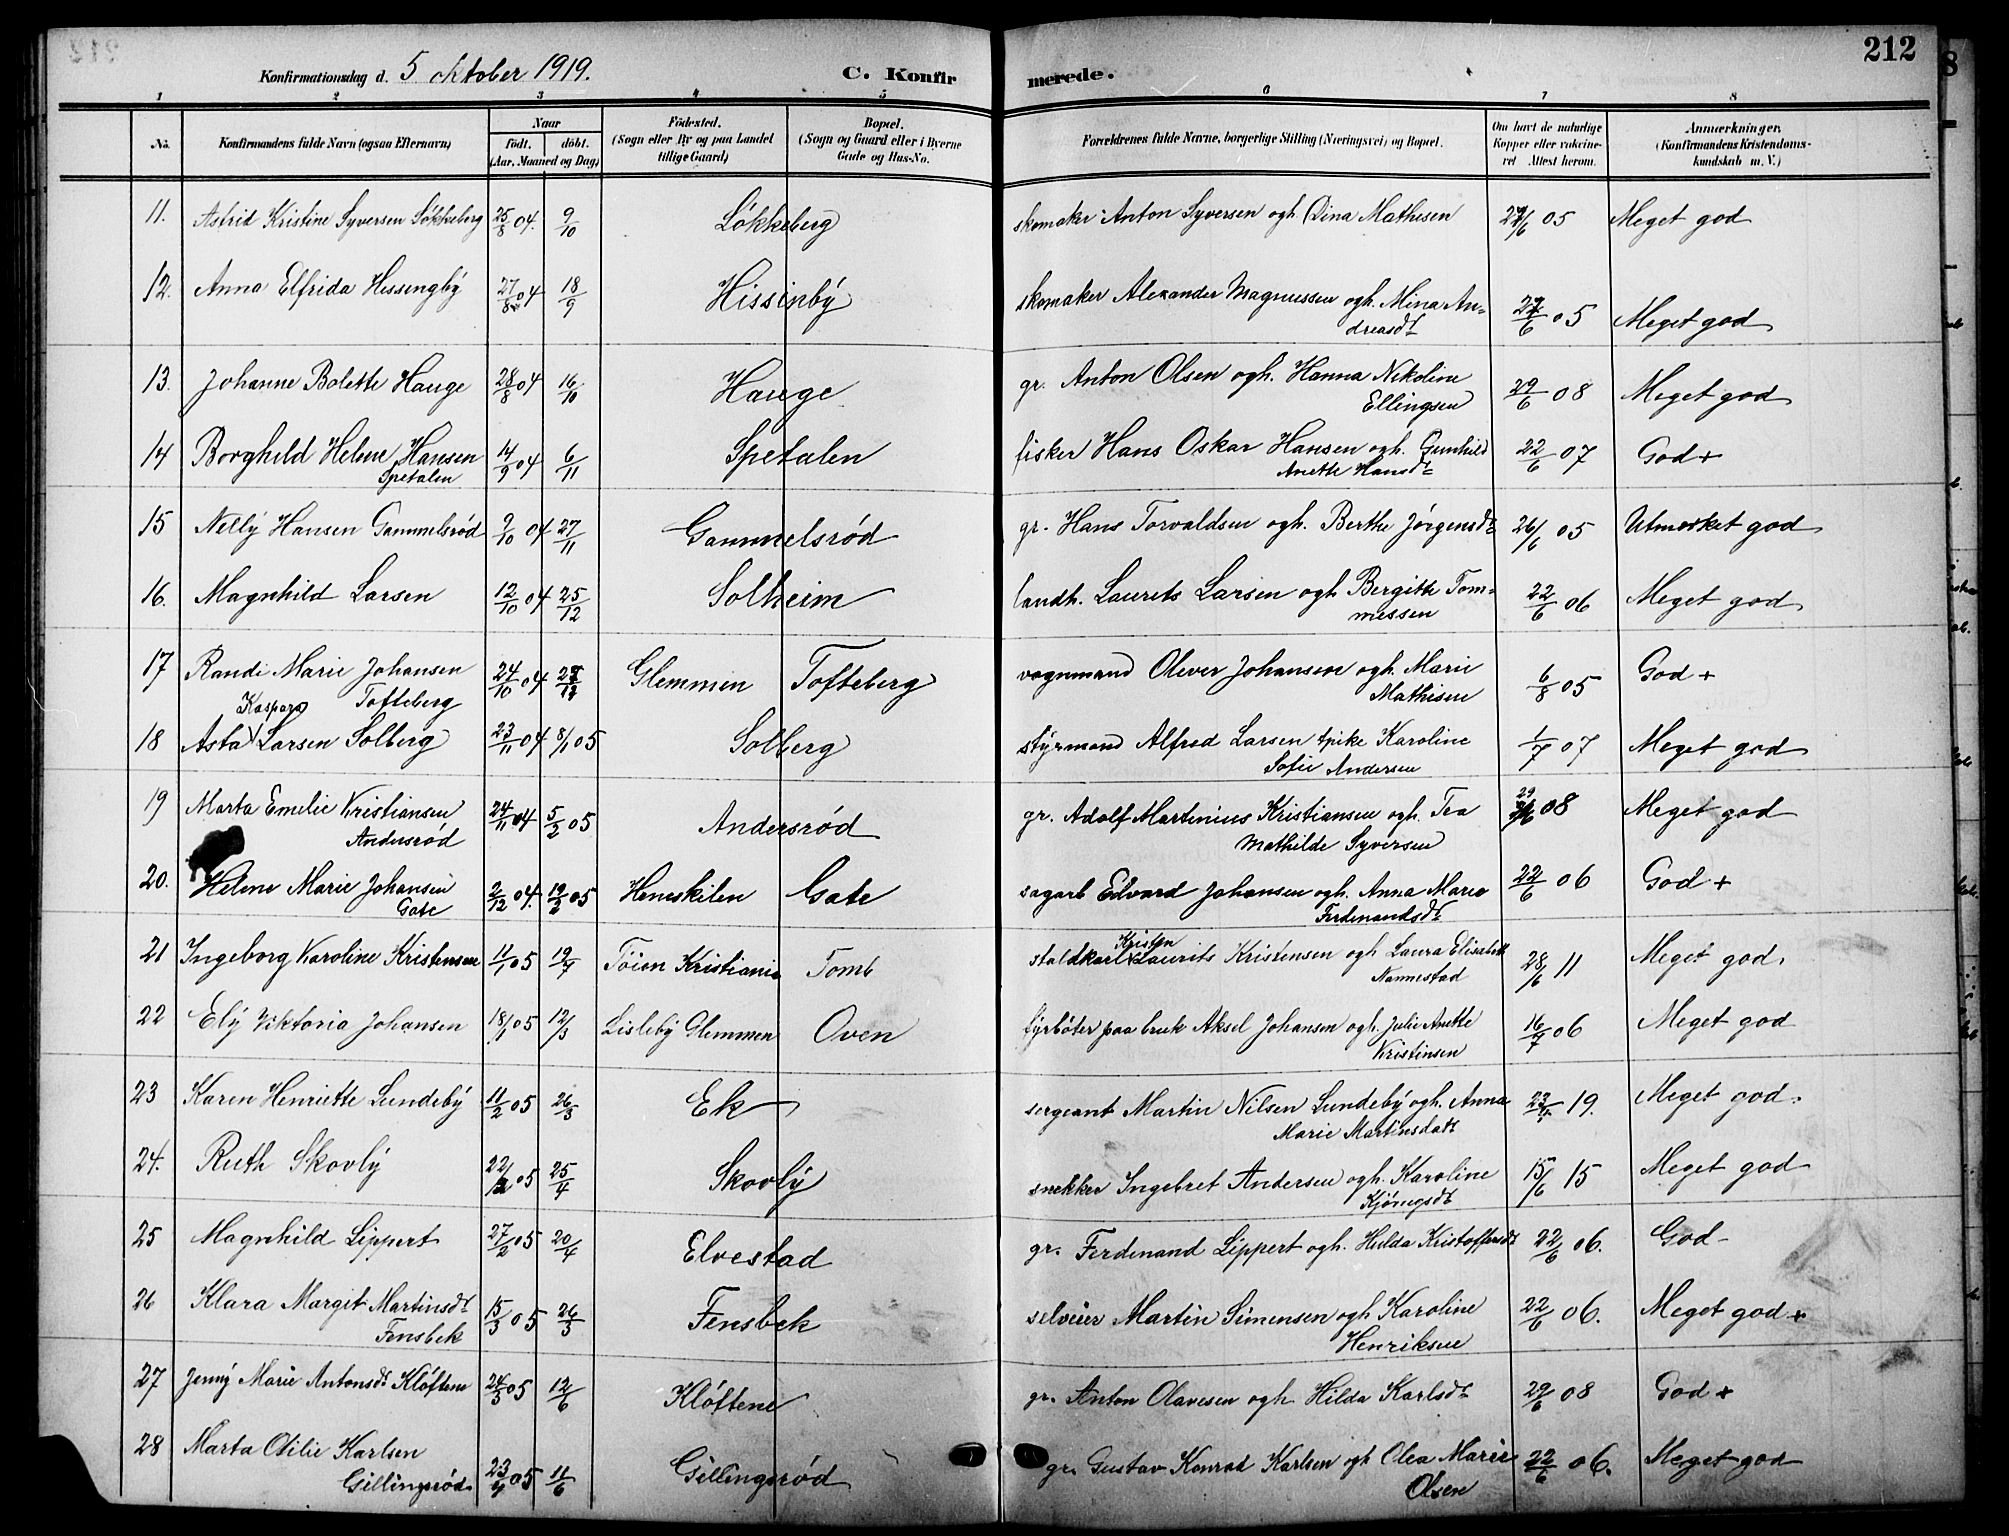 Konfirmationsdag d. 5 oktober 1919. C. Konfirmerede. 212
1 2 3 4 5 6 7 8
No. Konfirmandens fulde Navn (ogsaa Efternavn) Naar født. døbt. (Aar, Maaned og Dag) Fødested. (Sogn eller By og paa Landet tillige Gaard) Bopæl. (Sogn og Gaard eller i Byerne Gade og Hus-No. Forældrenes fulde Navne, borgerlige Stilling (Næringsvei) og Bopæl. Om havt de naturlige Kopper eller vakcineret Attest herom. Anmærkninger. (Konfirmandens Kristendomskundskab m. V.)
11. Astrid Kristine Syversen Løkkeberg 25/8 04. 9/10 Løkkeberg skomaker Anton Syversen ogh. Dina Mathisen 05 Meget god
12. Anna Elfrida Hissingbÿ 27/8 04 18/9 Hissinbÿ skomaker Alexander Magnussen ogh. Mina An=
dreasdt 05 Meget god
13. Johanne Bolette Hauge 28/8 04 16/10 Hauge gr. Anton Olsen ogh. Hanna Nikoline
Ellingsen 29/6 08 Meget god
14 Borghild Helene Hansen 14/9 04 6/11 Spetalen fisker Hans Oskar Hansen ogh. Gunhild
Spetalen Anette Hansdt 22/6 07 God +
15 Nellÿ Hansen Gammelsrød 9/10 04 27/11 Gammelsrød gr. Hans Torvaldsen ogh. Berthe Jørgensdt 26/6 05 Utmerket god
16. Magnhild Larsen 12/10 04 25/12 Solheim landh. Laurits Larsen ogh Bergitte Tom=
messen 22/6 06 Meget god
17 Randi Marie Johansen 24/10 04 Glemmen Tofteberg vognmand Oliver Johansen ogh. Marie
Tofteberg Mathisen 6/8 05 God +
Kaspara
18 Asta Larsen Solberg 23/11 04 8/1 05 Solberg stÿrmand Alfred Larsen tpike Karoline
Sofie Andersen 1/7 07 Meget god
19 Marta Emelie Kristiansen 24/11 04 5/2 05 Andersrød gr. Adolf Martinius Kristiansen ogh. Tea
Andersrød Mathilde Syversen 08 Meget god
20. Helene Marie Johansen 2/12 04. 19/2 05 Gate sagarb Edvard Johansen ogh. Anna Maria
Gate Ferdinandsdt 22/6 06 God +
21 Ingeborg Karoline Kristensen 11/1 05 19/7 Tøien Kristiania Tomb staldkarl Kristen Laurits Kristensen ogh Laura Elisabeth
Nannestad 28/6 11 Meget god.
22 Elÿ Viktoria Johansen 18/1 05 12/3 Lislebÿ Glemmen Oven fÿrbøter paa bruk Aksel Johansen ogh. Julie Anette
Kristinsen 16/7 06 Meget god
23 Karen Henriette Lundebÿ 11/2 05 26/3 Ek sergeant Martin Nilsen Lundebÿ ogh. Anna
Marie Martinsdatt 19. Meget god.
24. Ruth Skovlÿ 05 25/4 Skovlÿ snekker Ingebret Andersen ogh. Karoline
15/6 15 Meget god
25 Magnhild Lippert 27/2 05 20/4 Elvestad gr. Ferdinand Lippert ogh. Hulda Kristoffersdt 22/6 06. God -
26 Klara Margit Martinsdt 15/3 05 26/3 Fensbek selveier Martin Simensen ogh Karoline
Fensbek Henriksen 22/6 06. Meget god +
27 Jennÿ Marie Antonsdt Kløftene 24/3 05 12/6 Kløftene gr. Anton Olavesen ogh Hilda Karlsdt 29/6 08 God +
28 Marta Otilie Karlsen 23/4 05 11/6 Gillingsrød gr. Gustav Konrad Karlsen ogh Olea Marie
Gillingsrød Olsen 22/6 06. Meget god